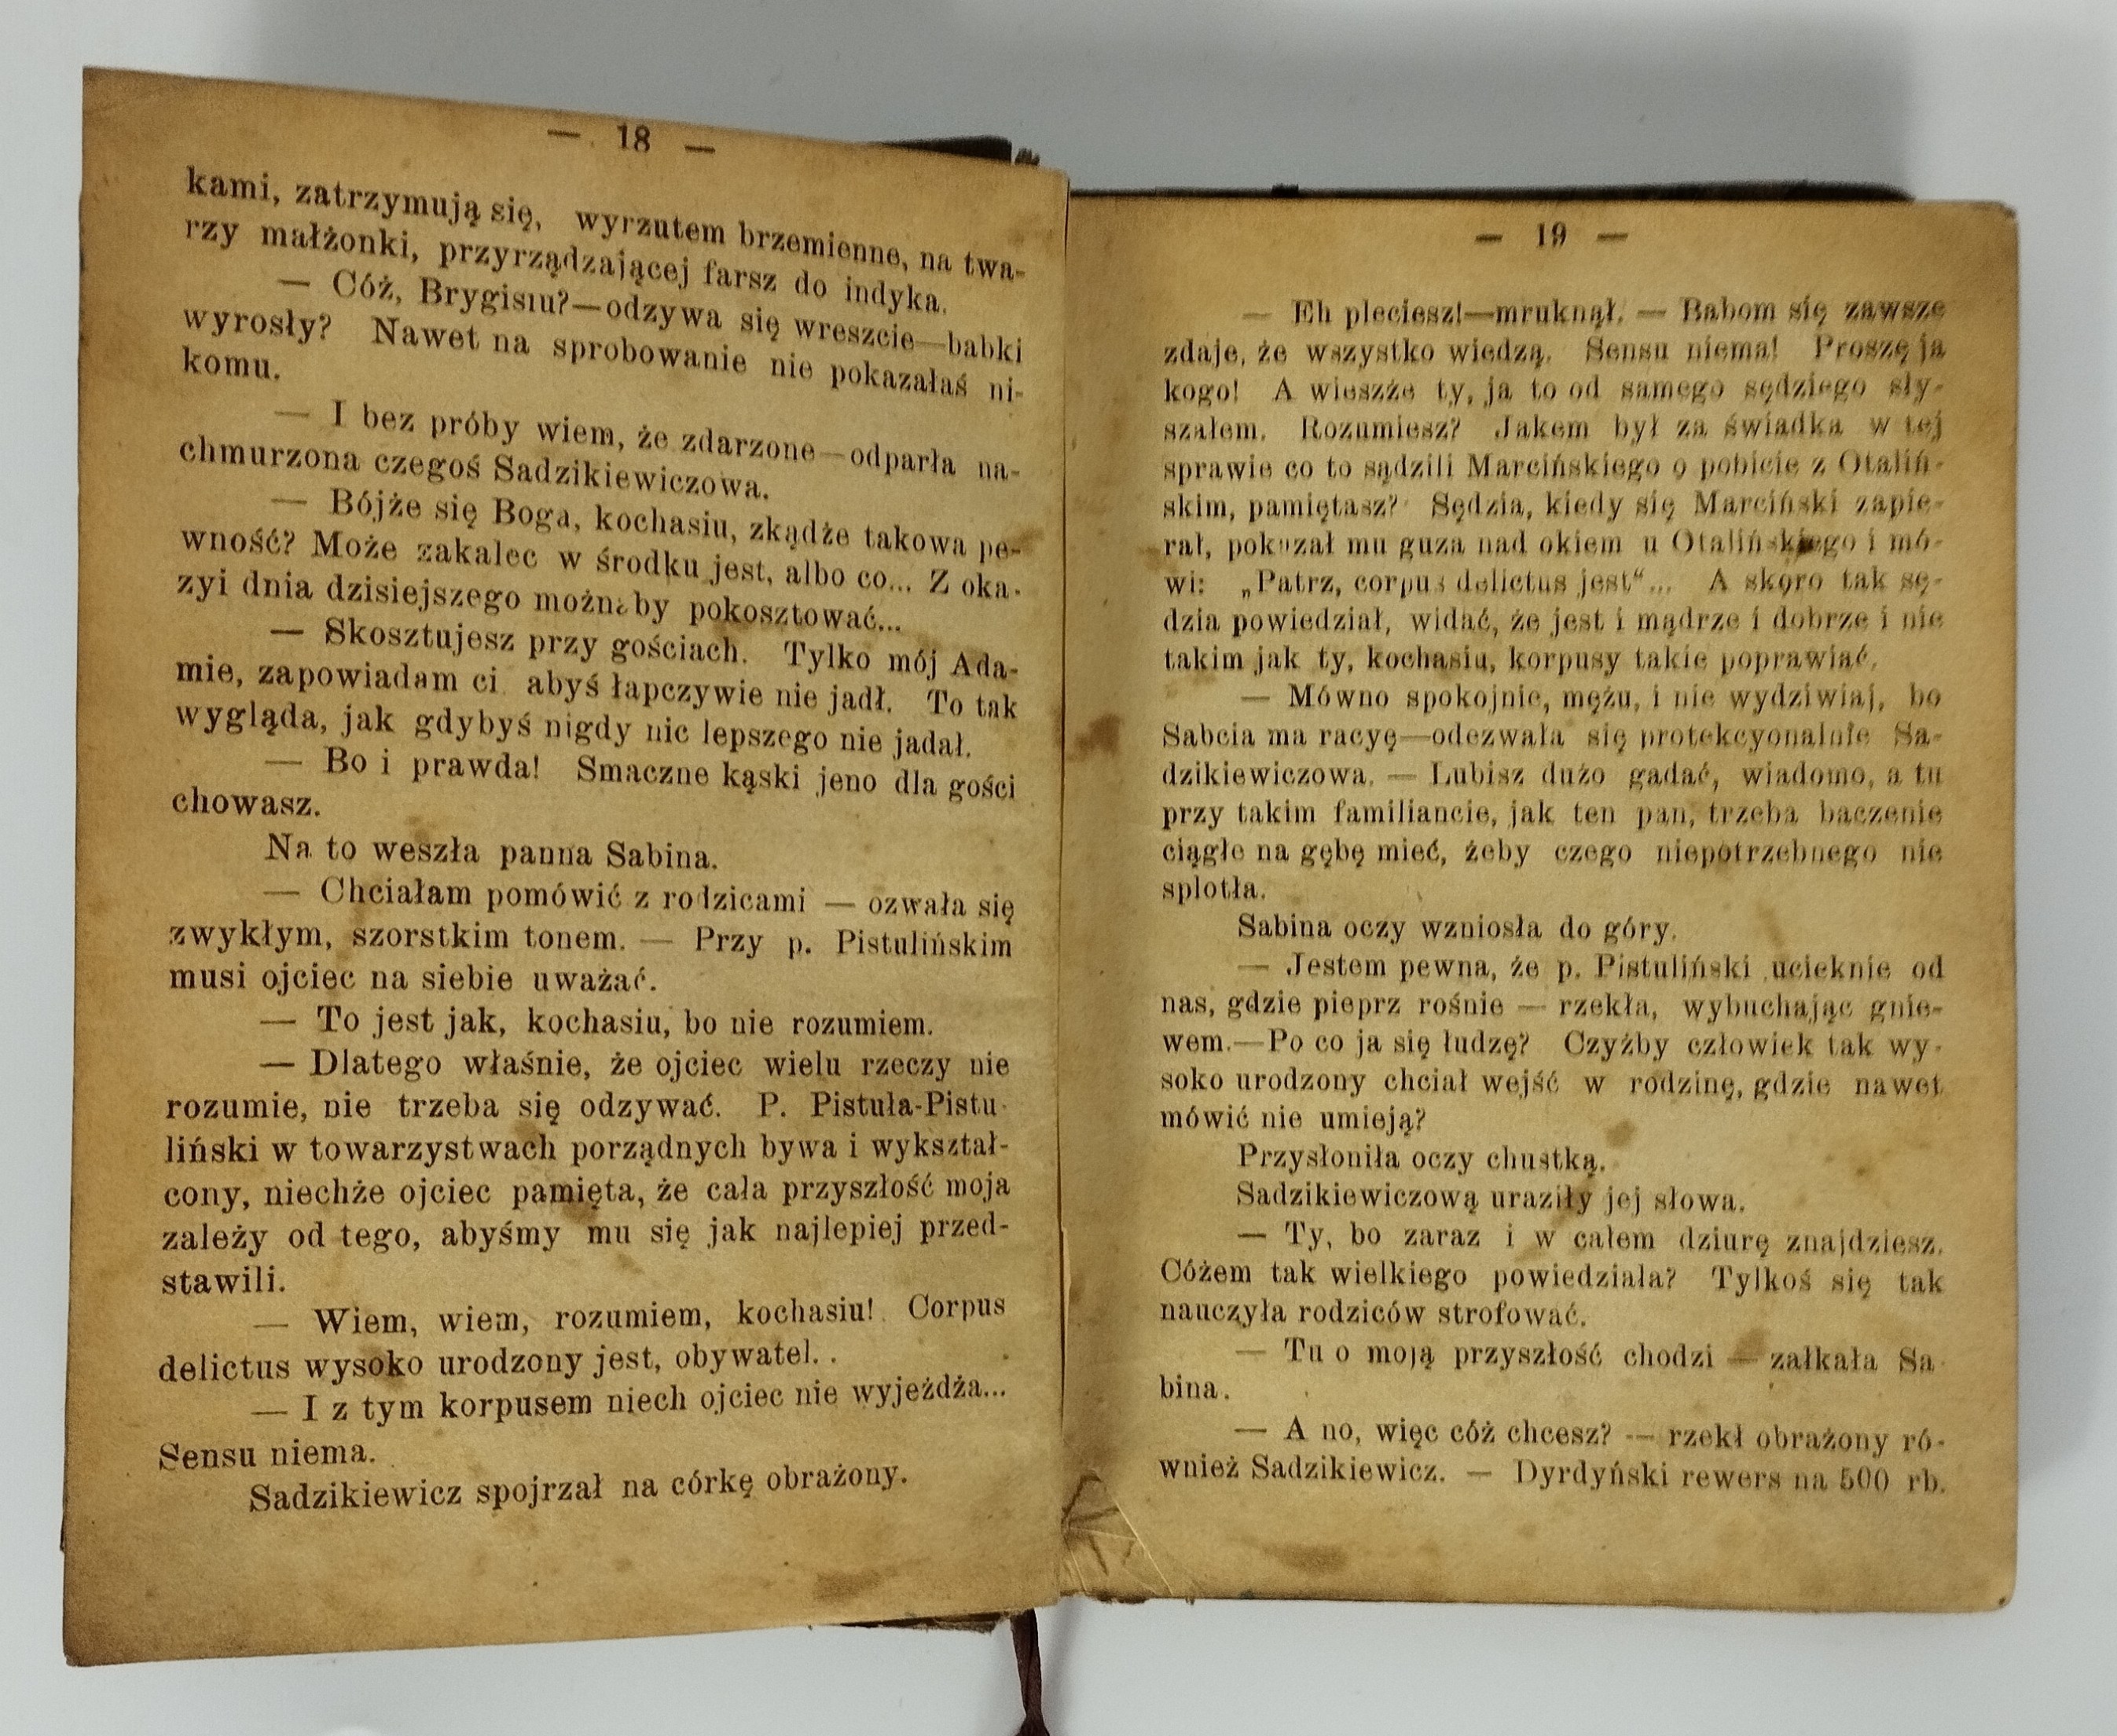 — 18 —
kami, zatrzymują się, wyrzutem brzemienne, na twa-
rzy małżonki, przyrządzającej farsz do indyka.
— Cóż, Brygisiu?—odzywa się wreszcie—babki
wyrosły? Nawet na sprobowanie nie pokazałaś ni-
komu.
— I bez próby wiem, że zdarzone—odparła na-
chmurzona czegoś Sadzikiewiczowa.
— Bójże się Boga, kochasiu, zkądże takowa pe-
wność? Może zakalec w środku jest, albo co... Z oka-
zyi dnia dzisiejszego możnaby pokosztować...
— Skosztujesz przy gościach. Tylko mój Ada-
mie, zapowiadam ci abyś łapczywie nie jadł. To tak
wygląda, jak gdybyś nigdy nic lepszego nie jadał.
— Bo i prawda! Smaczne kąski jeno dla gości
chowasz.
Na to weszła panna Sabina.
— Chciałam pomówić z rodzicami — ozwała się
zwykłym, szorstkim tonem. — Przy p. Pistulińskim
musi ojciec na siebie uważać.
— To jest jak, kochasiu, bo nie rozumiem.
— Dlatego właśnie, że ojciec wielu rzeczy nie
rozumie, nie trzeba się odzywać. P. Pistuła-Pistu-
liński w towarzystwach porządnych bywa i wykształ-
cony, niechże ojciec pamięta, że cała przyszłość moja
zależy od tego, abyśmy mu się jak najlepiej przed-
stawili.
— Wiem, wiem, rozumiem, kochasiu! Corpus
delictus wysoko urodzony jest, obywatel. .
— I z tym korpusem niech ojciec nie wyjeżdża...
Sensu niema.
Sadzikiewicz spojrzał na córkę obrażony.
— 19 —
— Eh pleciesz!—mruknął. — Babom się zawsze
zdaje, że wszystko wiedzą. Sensu niema! Proszę ja
kogo! A wieszże ty, ja to od samego sędziego sły-
szałem. Rozumiesz? Jakem był za świadka w tej
sprawie co to sądzili Marcińskiego o pobicie z Otaliń-
skim, pamiętasz? Sędzia, kiedy się Marciński zapie-
rał, pokazał mu guza nad okiem u Otalińskiego i mó-
wi: „Patrz, corpus delictus jest“... A skoro tak sę-
dzia powiedział, widać, że jest i mądrze i dobrze i nie
takim jak ty, kochasiu, korpusy takie poprawiać.
— Mówno spokojnie, mężu, i nie wydziwiaj, bo
Sabcia ma racyę—odezwała się protekcyonalnie Sa-
dzikiewiczowa. — Lubisz dużo gadać, wiadomo, a tu
przy takim familiancie, jak ten pan, trzeba baczenie
ciągle na gębę mieć, żeby czego niepotrzebnego nie
splotła.
Sabina oczy wzniosła do góry.
— Jestem pewna, że p. Pistuliński ucieknie od
nas, gdzie pieprz rośnie — rzekła, wybuchając gnie-
wem.—Po co ja się łudzę? Czyżby człowiek tak wy-
soko urodzony chciał wejść w rodzinę, gdzie nawet
mówić nie umieją?
Przysłoniła oczy chustką.
Sadzikiewiczową uraziły jej słowa.
— Ty, bo zaraz i w całem dziurę znajdziesz.
Cóżem tak wielkiego powiedziała? Tylkoś się tak
nauczyła rodziców strofować.
— Tu o moją przyszłość chodzi — załkała Sa-
bina.
— A no, więc cóż chcesz? — rzekł obrażony ró-
wnież Sadzikiewicz. — Dyrdyński rewers na 500 rb.